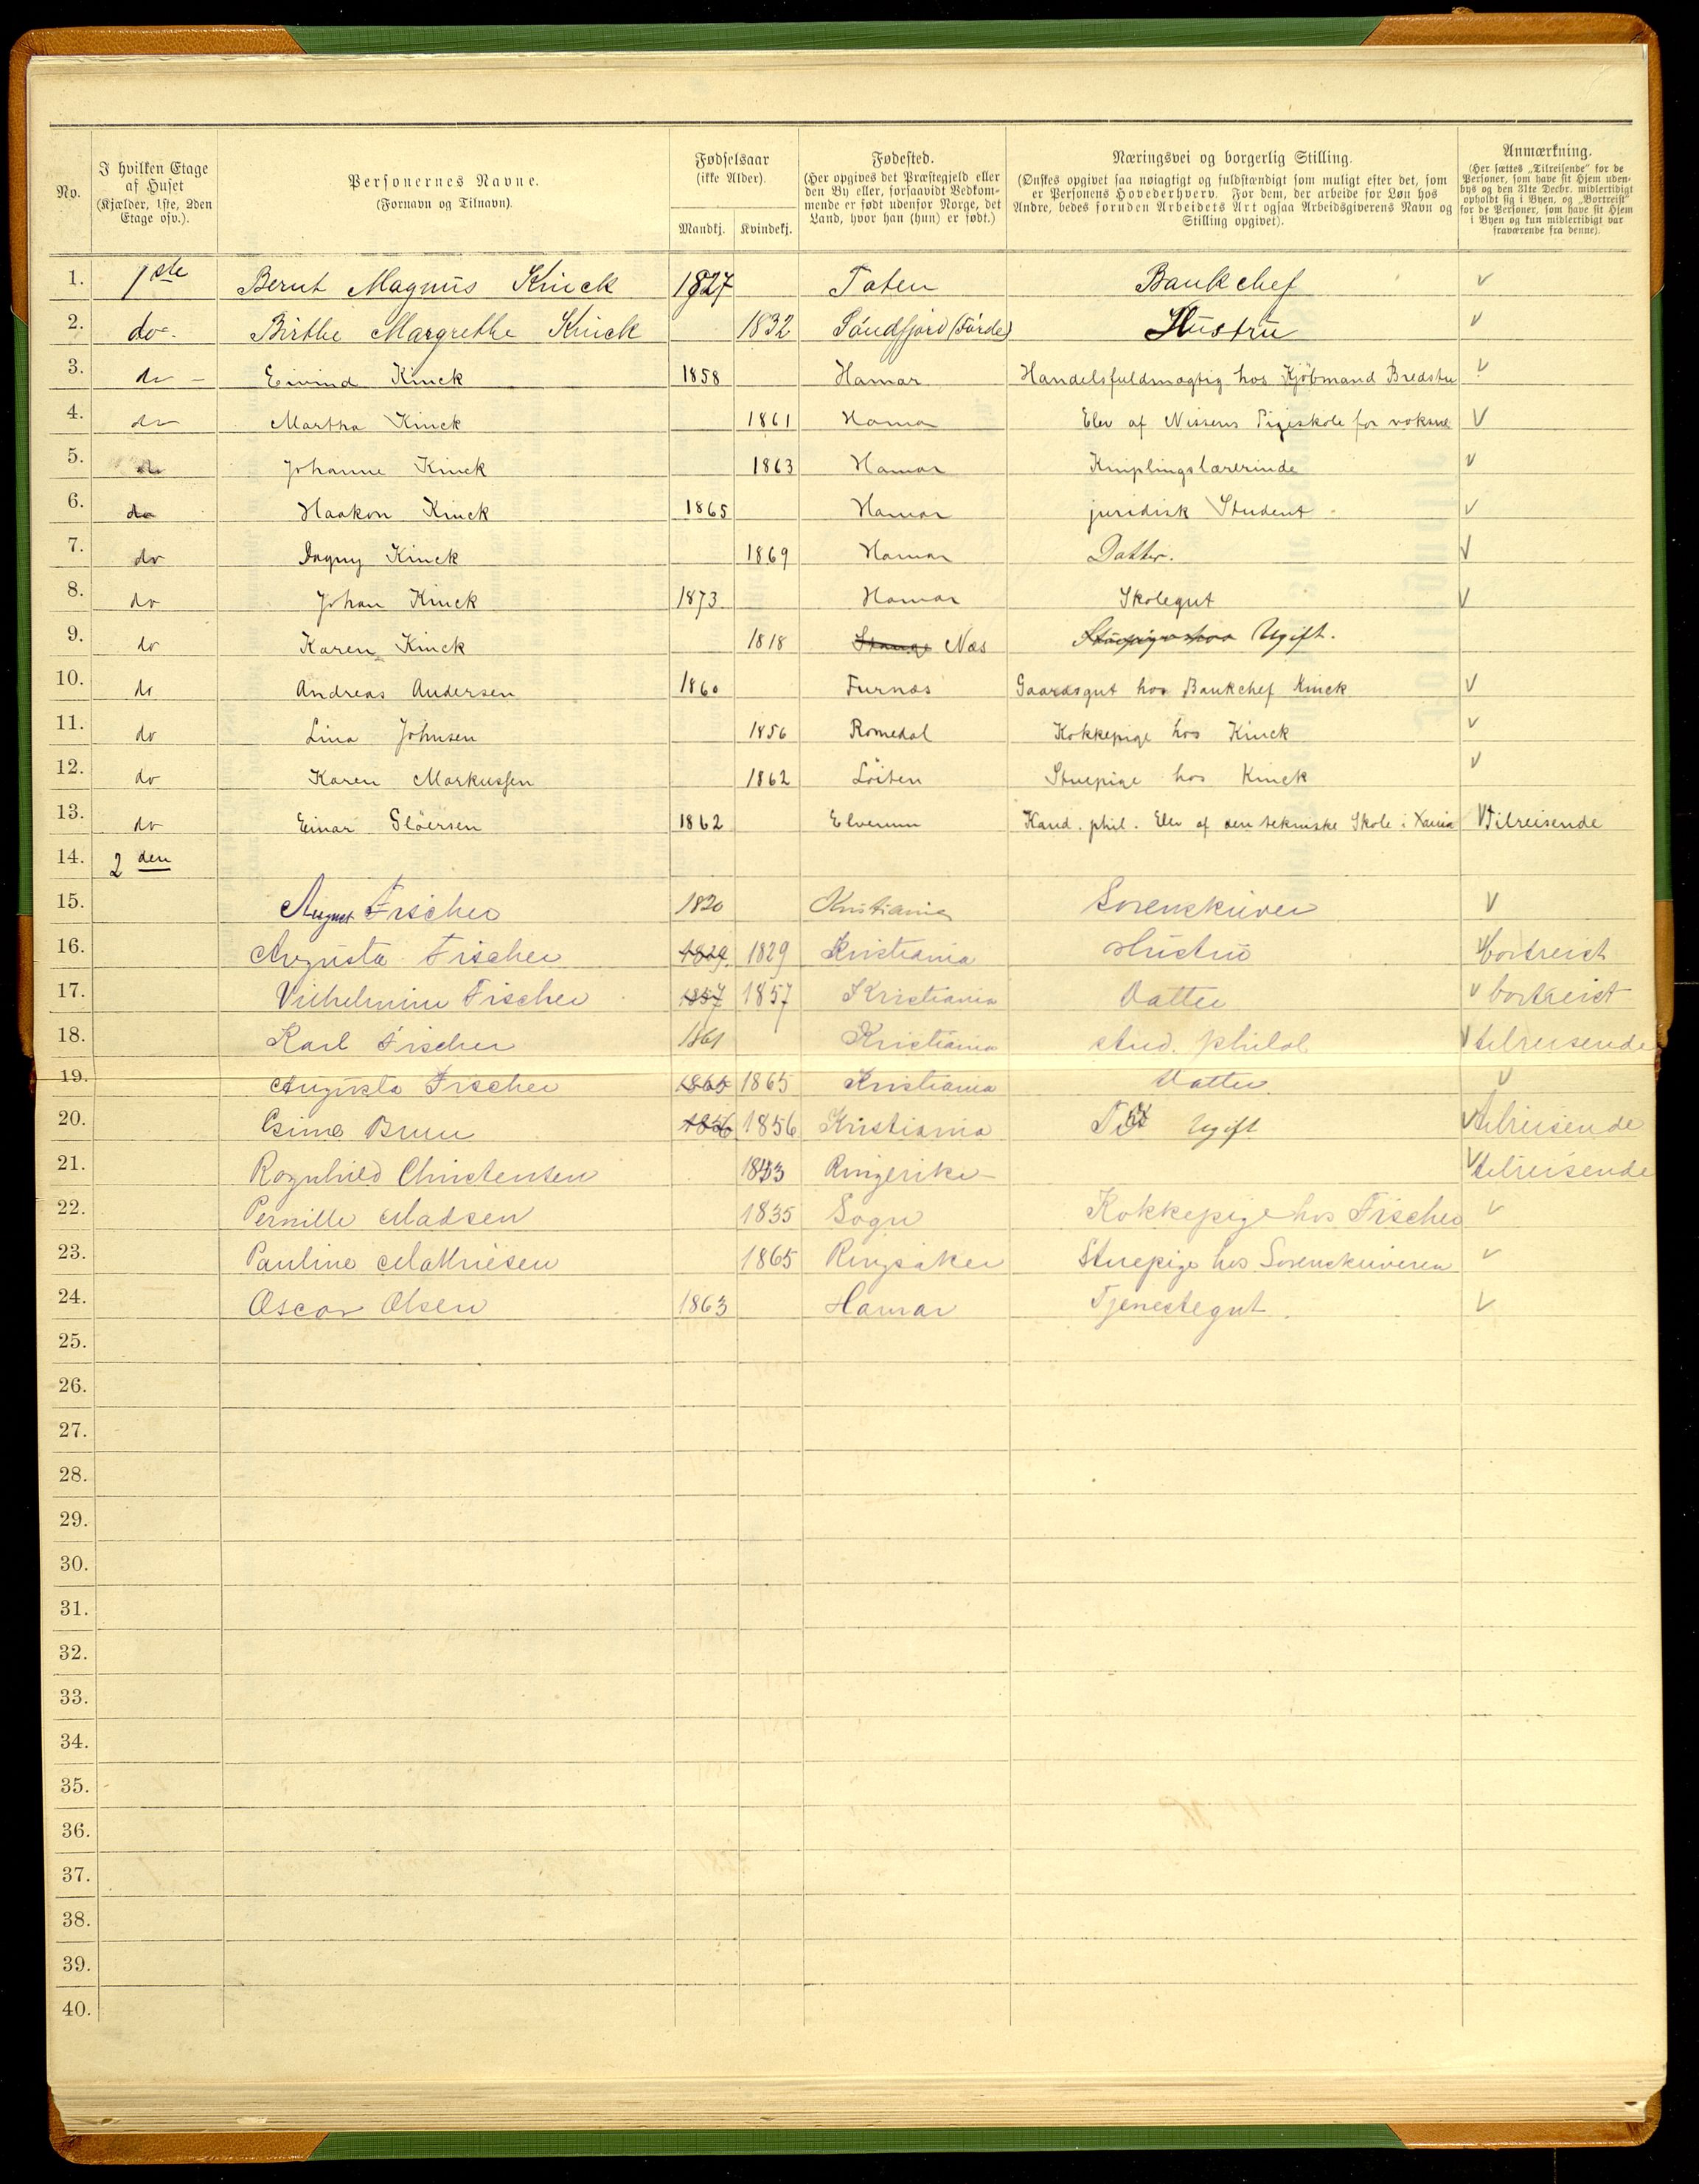 No. I hvilken Etage af Huset (Kjælder, 1ste, 2den Etage osv.). Personernes Navne. (Fornavn og Tilnavn). Fødselsaar (ikke Alder). Mandkj. Kvindekj. Fødested. (Her opgives det Præstegjeld eller den By eller, forsaavidt Vedkommende er født udenfor Norge, det Land, hvor han (hun) er født.) Næringsvei og borgerlig Stilling. (Ønskes opgivet saa nøiagtigt og fuldstændigt som muligt efter det, som er Personens Hovederhverv. For dem, der arbeide for Løn hos Andre, bedes foruden Arbeidets Art ogsaa Arbeidsgiverens Navn og Stilling opgivet). Anmærkning. (Her sættes „Tilreisende" for de Personer, som have sit Hjem udenbys og den 31te Decbr. midlertidigt opholdt sig i Byen, og „Bortreist" for de Personer, som have sit Hjem i Byen og kun midlertidigt var fraværende fra denne).
1. 1ste Bernt Magnus Kinck 1827 Toten Bankchef v
2. do- Birthe Margrethe Kinck 1832 Söndfjord (Förde) Hustru v
3. do - Eivind Kinck 1858 Hamar Handelsfuldmægtig hos Kjöbmand Bredstu v
4. do Martha Kinck 1861 Hamar Elev af Nissens Pigeskole for voksne v
5. do Johanne Kinck 1863 Hamar Kniplingslærerinde v
6. do Haakon Kinck 1865 Hamar juridisk Student v
7. do Dagny Kinck 1869 Hamar Datter. v
8. do Johan Kinck 1873 Hamar Skolegut v
9. do Karen Kinck 1818 Stange Næs Stuepige hos Ugift.
10. do Andreas Andersen 1860 Furnæs Gaardsgut hos Bankchef Kinck v
11. do Lina Johnsen 1856 Romedal Kokkepige hos Kinck v
12. do Karen Markussen 1862 Löiten Stuepige hos Kinck v
13. do Einar Glöersen 1862 Elverum Kand. phil. Elev af den tekniske Skole i Xania v Tilreisende
14. 2den
15. August Fischer 1820 Kristiania Sorenskriver v
16. Augusta Fischer 1829 1829 Kristiania Hustru v bortreist
17. Vilhelmine Fischer 1857 1857 Kristiania Datter v bortreist
18. Karl Fischer 1861 Kristiania stud. philol v tilreisende
19. Augusta Fischer 1865 1865 Kristiania Datter v
20. Bruun 1856 1856 Kristiania Ugift v tilreisende
21. Ragnhild Christensen 1843 Ringerike v tilreisende
22. Pernille Madsen 1835 Sogn Kokkepige hos Fischer v
23. Pauline Mathiesen 1865 Ringsaker Stuepige hos Sorenskriveren v
24. Oscar Olsen 1863 Hamar Tjenestegut v
25.
26.
27.
28.
29.
30.
31.
32.
33.
34.
35.
36.
37.
38.
39.
40.